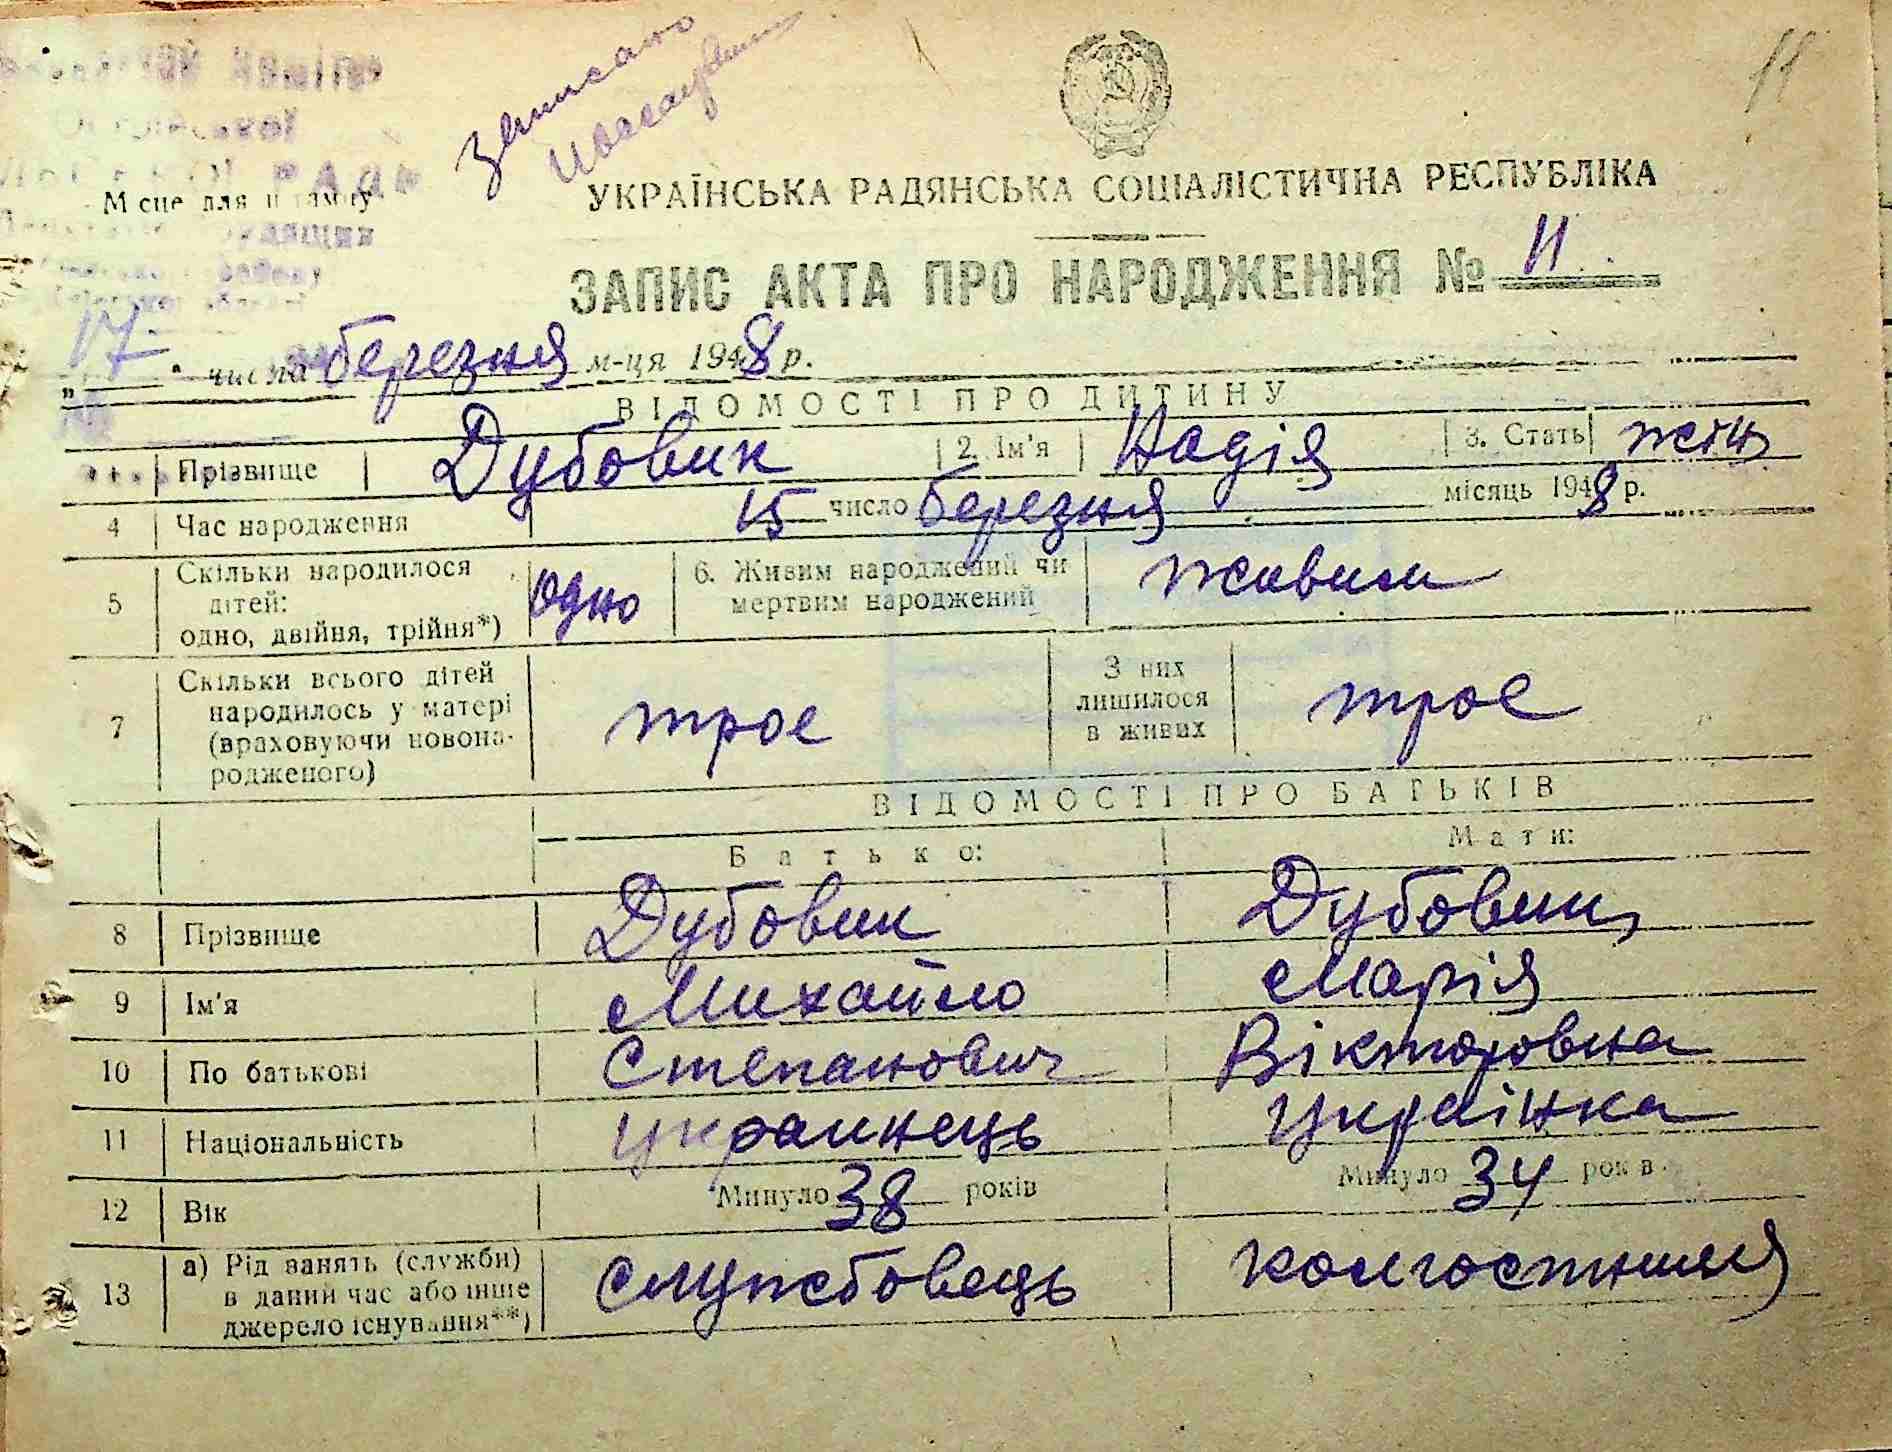 11
УКРАЇНСЬКА РАДЯНСЬКА СОЦІАЛІСТИЧНА РЕСПУБЛІКА
Місце для штампу
ЗАПИС АКТА ПРО НАРОДЖЕННЯ № 11
„17“ числа березня м-ця 1948 р.
ВІДОМОСТІ ПРО ДИТИНУ
1 Прізвище Дубовик 2. Ім'я Надія 3. Стать жін
4 Час народження 15 число березня місяць 1948 р.
5 Скільки народилося дітей: одно, двійня, трійня*) одно 6. Живим народжений чи мертвим народжений живим
7 Скільки всього дітей народилось у матері (враховуючи новонародженого) троє З них лишилося в живих троє
ВІДОМОСТІ ПРО БАТЬКІВ
Батько: Мати:
8 Прізвище Дубовик Дубовик
9 Ім'я Михайло Марія
10 По батькові Степанович Вікторовна
11 Національність украинець українка
12 Вік Минуло 38 років Минуло 34 років
13 а) Рід занять (служби) в даний час або інше джерело існування**) службовець колгоспниця